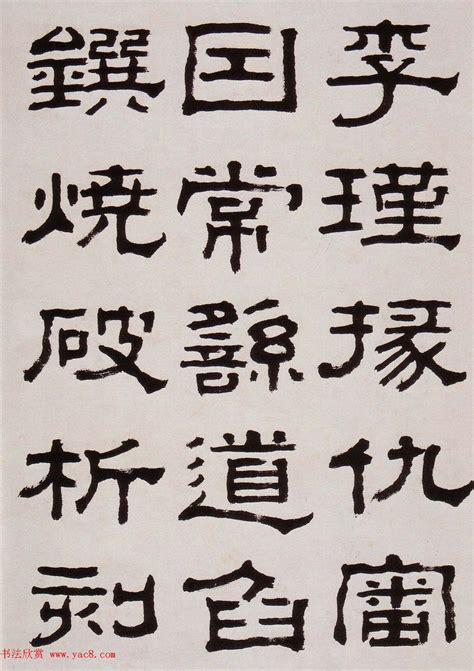 李瑾掾仇審
因常繇道臽
鐉燒破析刻
书法欣赏 www.yac8.com